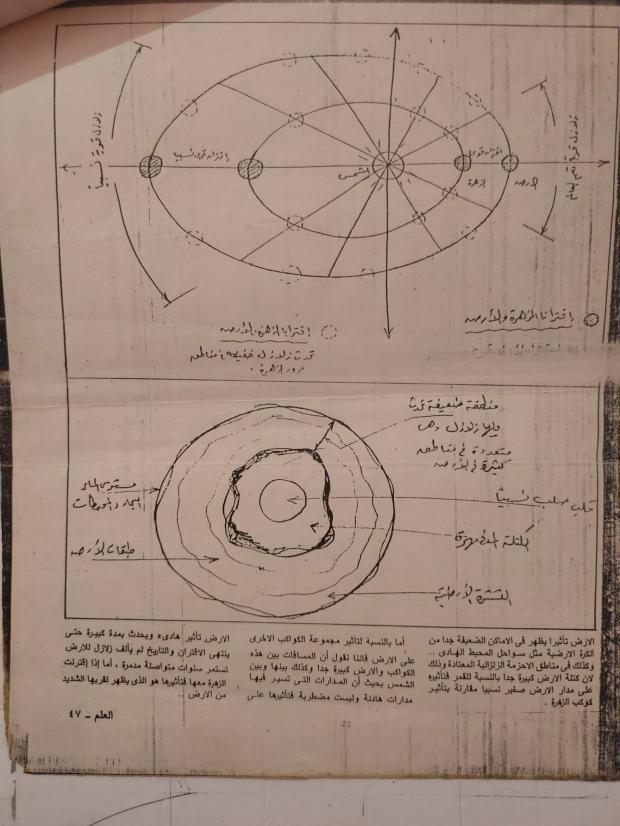 زلازل قوية نسبياً
إقتران قوى نسبياً
الشمس
إقتران قوى
الزهرة
الأرض
إقترانا الزهرة والأرض
إقترانا الزهرة والأرض
تحدث زلازل خفيفة فى مناطق
مرور الزهرة .
منطقة ضعيفة تحدث
فيها زلازل وهى
متعددة فى مناطق
كثيرة فى الأرض
مستوى الماء
البحار والمحيطات
قلب صلب نسبياً
طبقات الأرض
القشرة الأرضية
الارض تأثيرا يظهر فى الاماكن الضعيفة جدا من
الكرة الارضية مثل سواحل المحيط الهادى ..
وكذلك فى مناطق الاحزمة الزلزالية المعتادة وذلك
لان كتلة الارض كبيرة جدا بالنسبة للقمر فتأثيره
على مدار الارض صغير نسبيا مقارنة بتأثير
كوكب الزهرة .
أما بالنسبة لتأثير مجموعة الكواكب الاخرى
على الارض فاننا نقول أن المسافات بين هذه
الكواكب والارض كبيرة جدا وكذلك بينها وبين
الشمس بحيث أن المدارات التى تسير فيها
مدارات هادئة وليست مضطربة فتأثيرها على
الارض تأثير هادىء ويحدث بمدة كبيرة حتى
ينتهى الاقتران والتاريخ لم يألف زلازل للارض
تستمر سنوات متواصلة مدمرة ، أما إذا إقترنت
الزهرة معها فتأثيرها هو الذى يظهر لقربها الشديد
من الارض ..
العلم - ٤٧